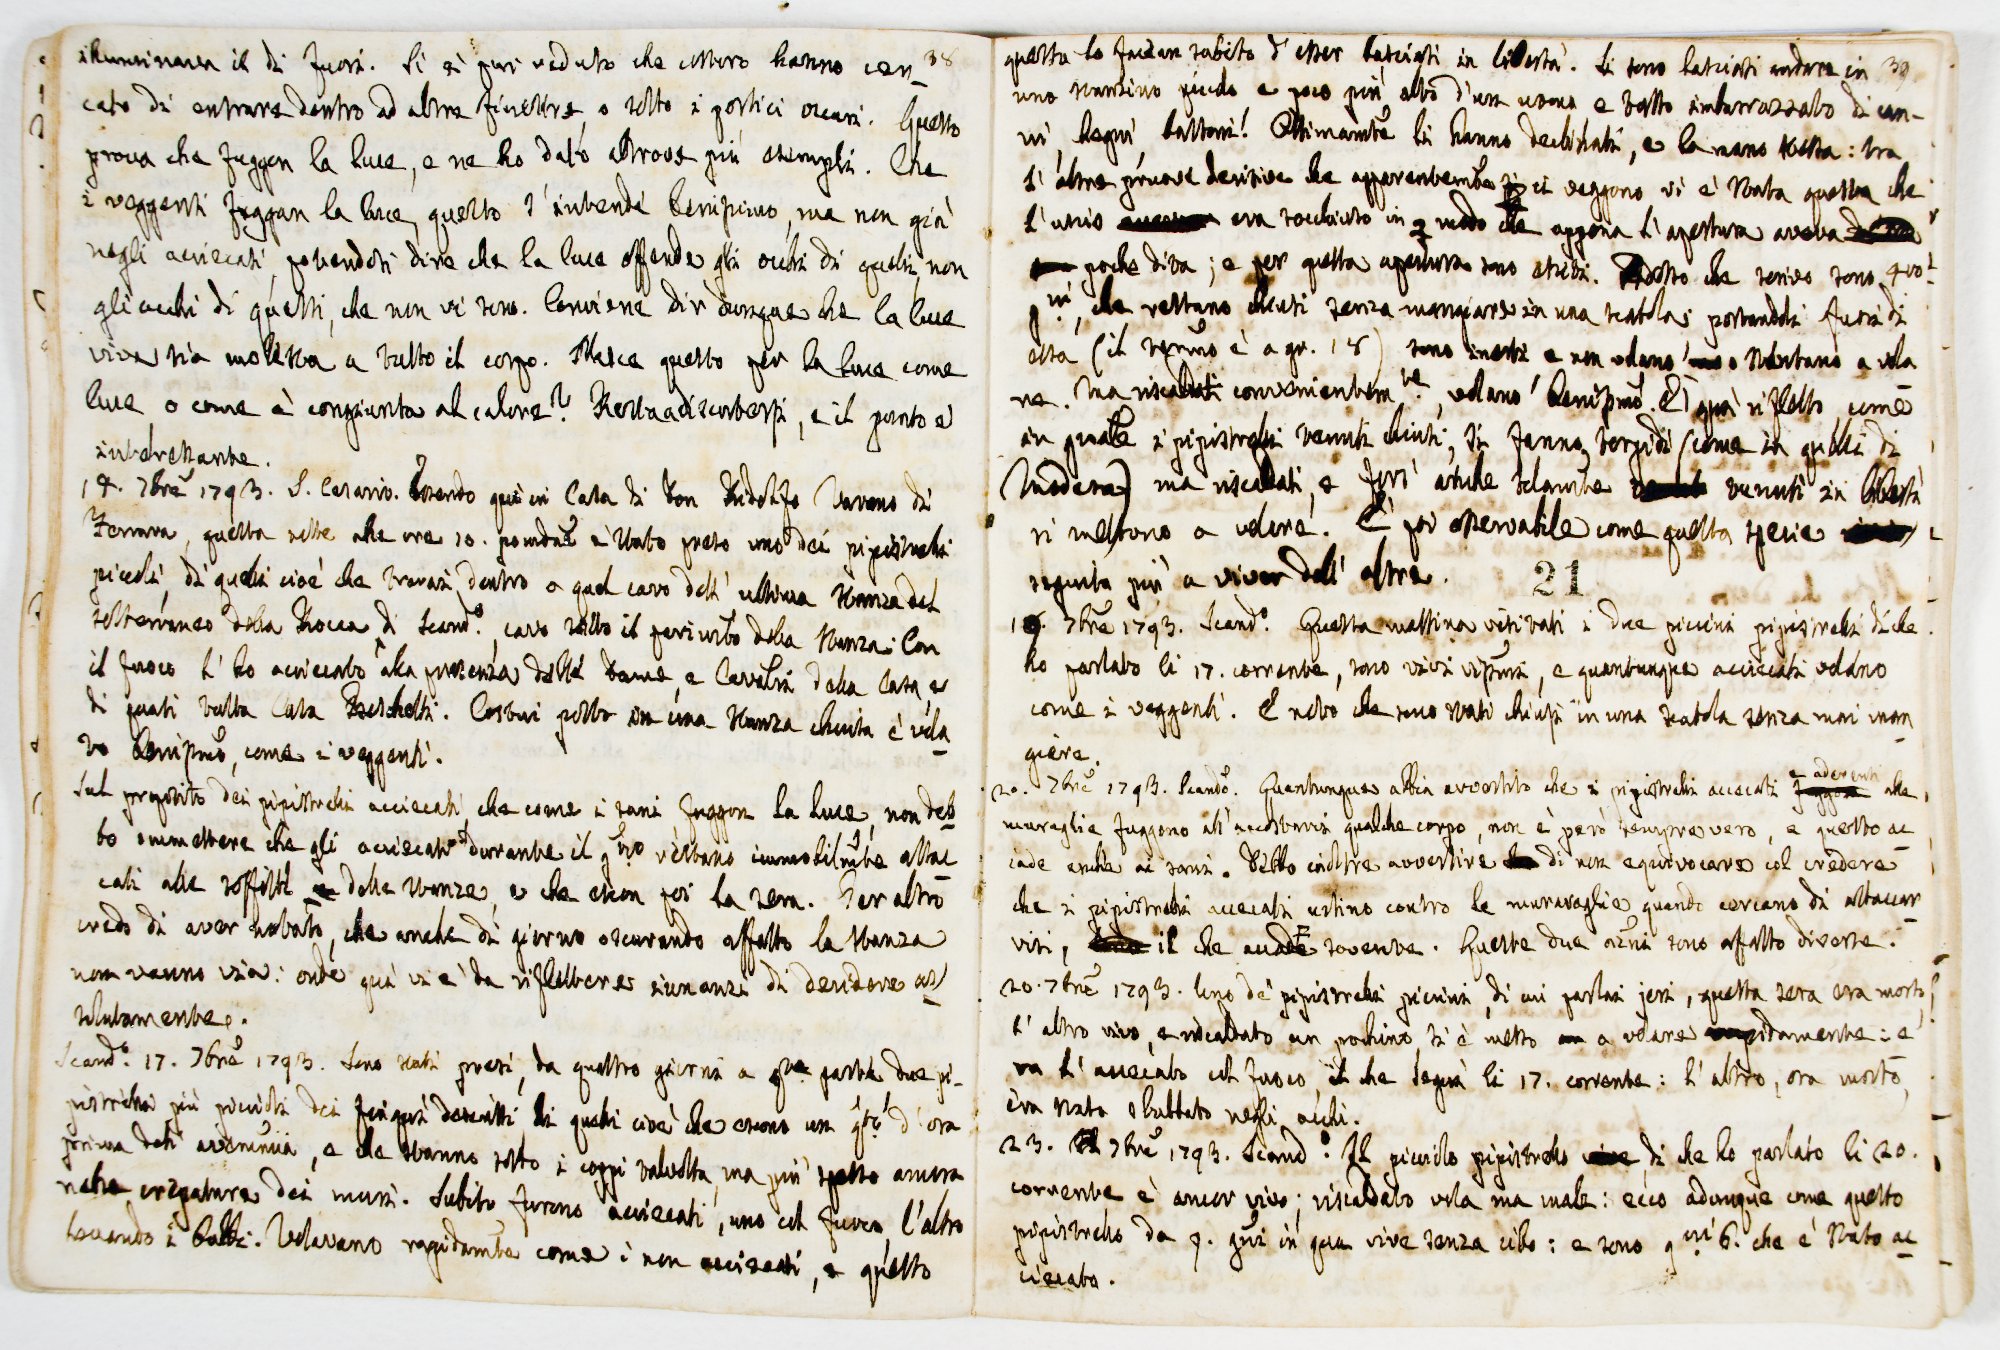 illuminava il di fuori. Si è pur veduto che costoro hanno cer- 38
cato di entrare dentro ad altre finestre, o sotto i portici oscuri. Questo
prova che fuggon la luce, e ne ho dato altrove più esempli. Che
i veggenti fuggan la luce, questo s'intende benissimo, ma non già
negli acciecati, potendosi dire che la luce offende gli occhi di quelli, non
gli occhi di questi, che non vi sono. Conviene dir dunque che la luce
viva sia molesta a tutto il corpo. Nasce questo per la luce come
luce o come è congiunta al calore? Resta a discutersi, e il punto è
interessante.
14. 7bre 1793. S. Cesario. Essendo qui in Casa di Don Ridolfo Varano di
Ferrara, questa notte alle ore 10. è stato preso uno dei pipistrelli
piccoli, di quelli cioè che trovasi dentro a quel cavo dell' ultima stanza del
sotterraneo della Rocca di Scand.o, cavo sotto il pavimto della stanza. Con
il fuoco l'ho acciecato alla presenza delle Dame, e Cavalieri della Casa, e
di quasi tutta Casa Boschetti. Costui posto in una stanza chiusa è vola
to benissmo, come i veggenti.
Sul proposito dei pipistrelli acciecati, che come i sani fuggon la luce, non deb
bo ommettere che gli acciecati durante il giorno restano immobilmte attac
cati alle soffitte delle stanze, e che escon poi la sera. Per altro
credo di aver notato, che anche di giorno oscurando affatto la stanza
non vanno via: onde quì vi è da riflettere innanzi di decidere as
solutamente.
Scand.o 17. 7bre 1793. Sono stati presi, da quattro giorni a qta parte due pi-
pistrelli più piccoli dei finquì descritti di quelli cioè che escono un qto d'ora
prima dell' avemmia, e che stanno sotto i coppi talvolta, ma più spesso ancora
nelle crepature dei muri. Subito furono acciecati, uno col fuoco, l'altro
levando i bulbi. Volavano rapidamte come i non acciecati, e questo
questa lo facean subito d'esser lasciati in libertà. Si sono lasciati andare in 39
uno stanzino piccolo e poco più alto d'un uomo e tutto imbarazzato di can-
ni, legni, bastoni! Ottimamte li hanno declinati, e la mano stessa: tra
l'altre pruove decisive che apparentemte ci veggono vi è stata questa che
l'uscio era socchiuso in modo che appena l'apertura aveva
poche dita; e per questa apertura sono esciti. Adesso che scrivo sono 4
gni, che restano chiusi senza mangiare in una scatola; portandoli fuori di
essa (il termo è a gr. 18) sono inerti, e non volano o stentano a vola
re. Ma riscaldati convenientemte, volano benissmo. E quà rifletto come
in quale i pipistrelli tenuti chiusi, si fanno torpidi (come in quelli di
Modena) ma riscaldati, e forse anche solamte tenuti in libertà
si mettono a volare. È poi osservabile come questa specie
seguita più a viver dell' altre. 21
19. 7bre 1793. Scand.o Questa mattina visitati i due piccini pipistrelli di che
ho parlato li 17. corrente, sono vivi vivissmi, e quantunque acciecati volano
come i veggenti. E noto che sono stati chiusi in una scatola senza mai man
giare.
20. 7bre 1793. Scando. Quantunque abbia avvertito che i pipistrelli accecati e aderenti alle
muraglie fuggono all' accostarvisi qualche corpo, non è però sempre vero, e questo ac
cade anche ai sani. Debbo inoltre avvertire di non equivocare col credere
che i pipistrelli accecati urtino contro le muraglie quando cercano di attaccar
visi, il che accade sovente. Queste due azni sono affatto diverse.
20. 7bre 1793. Uno de' pipistrelli piccini, di cui parlai jeri, questa sera era morto,
l'altro vivo, e riscaldato un pochino si è messo a volare rapidamente: e
ra l'accecato col fuoco il che seguì li 17. corrente: l'altro, ora morto,
era stato sbulbato negli occhi.
23. 7bre 1793. Scand.o Il piccolo pipistrello di che ho parlato li 20.
corrente è ancor vivo; riscaldato vola ma male: ecco adunque come questo
pipistrello da 9. gni in qua vive senza cibo: e sono gni 6. che è stato ac
ciecato.